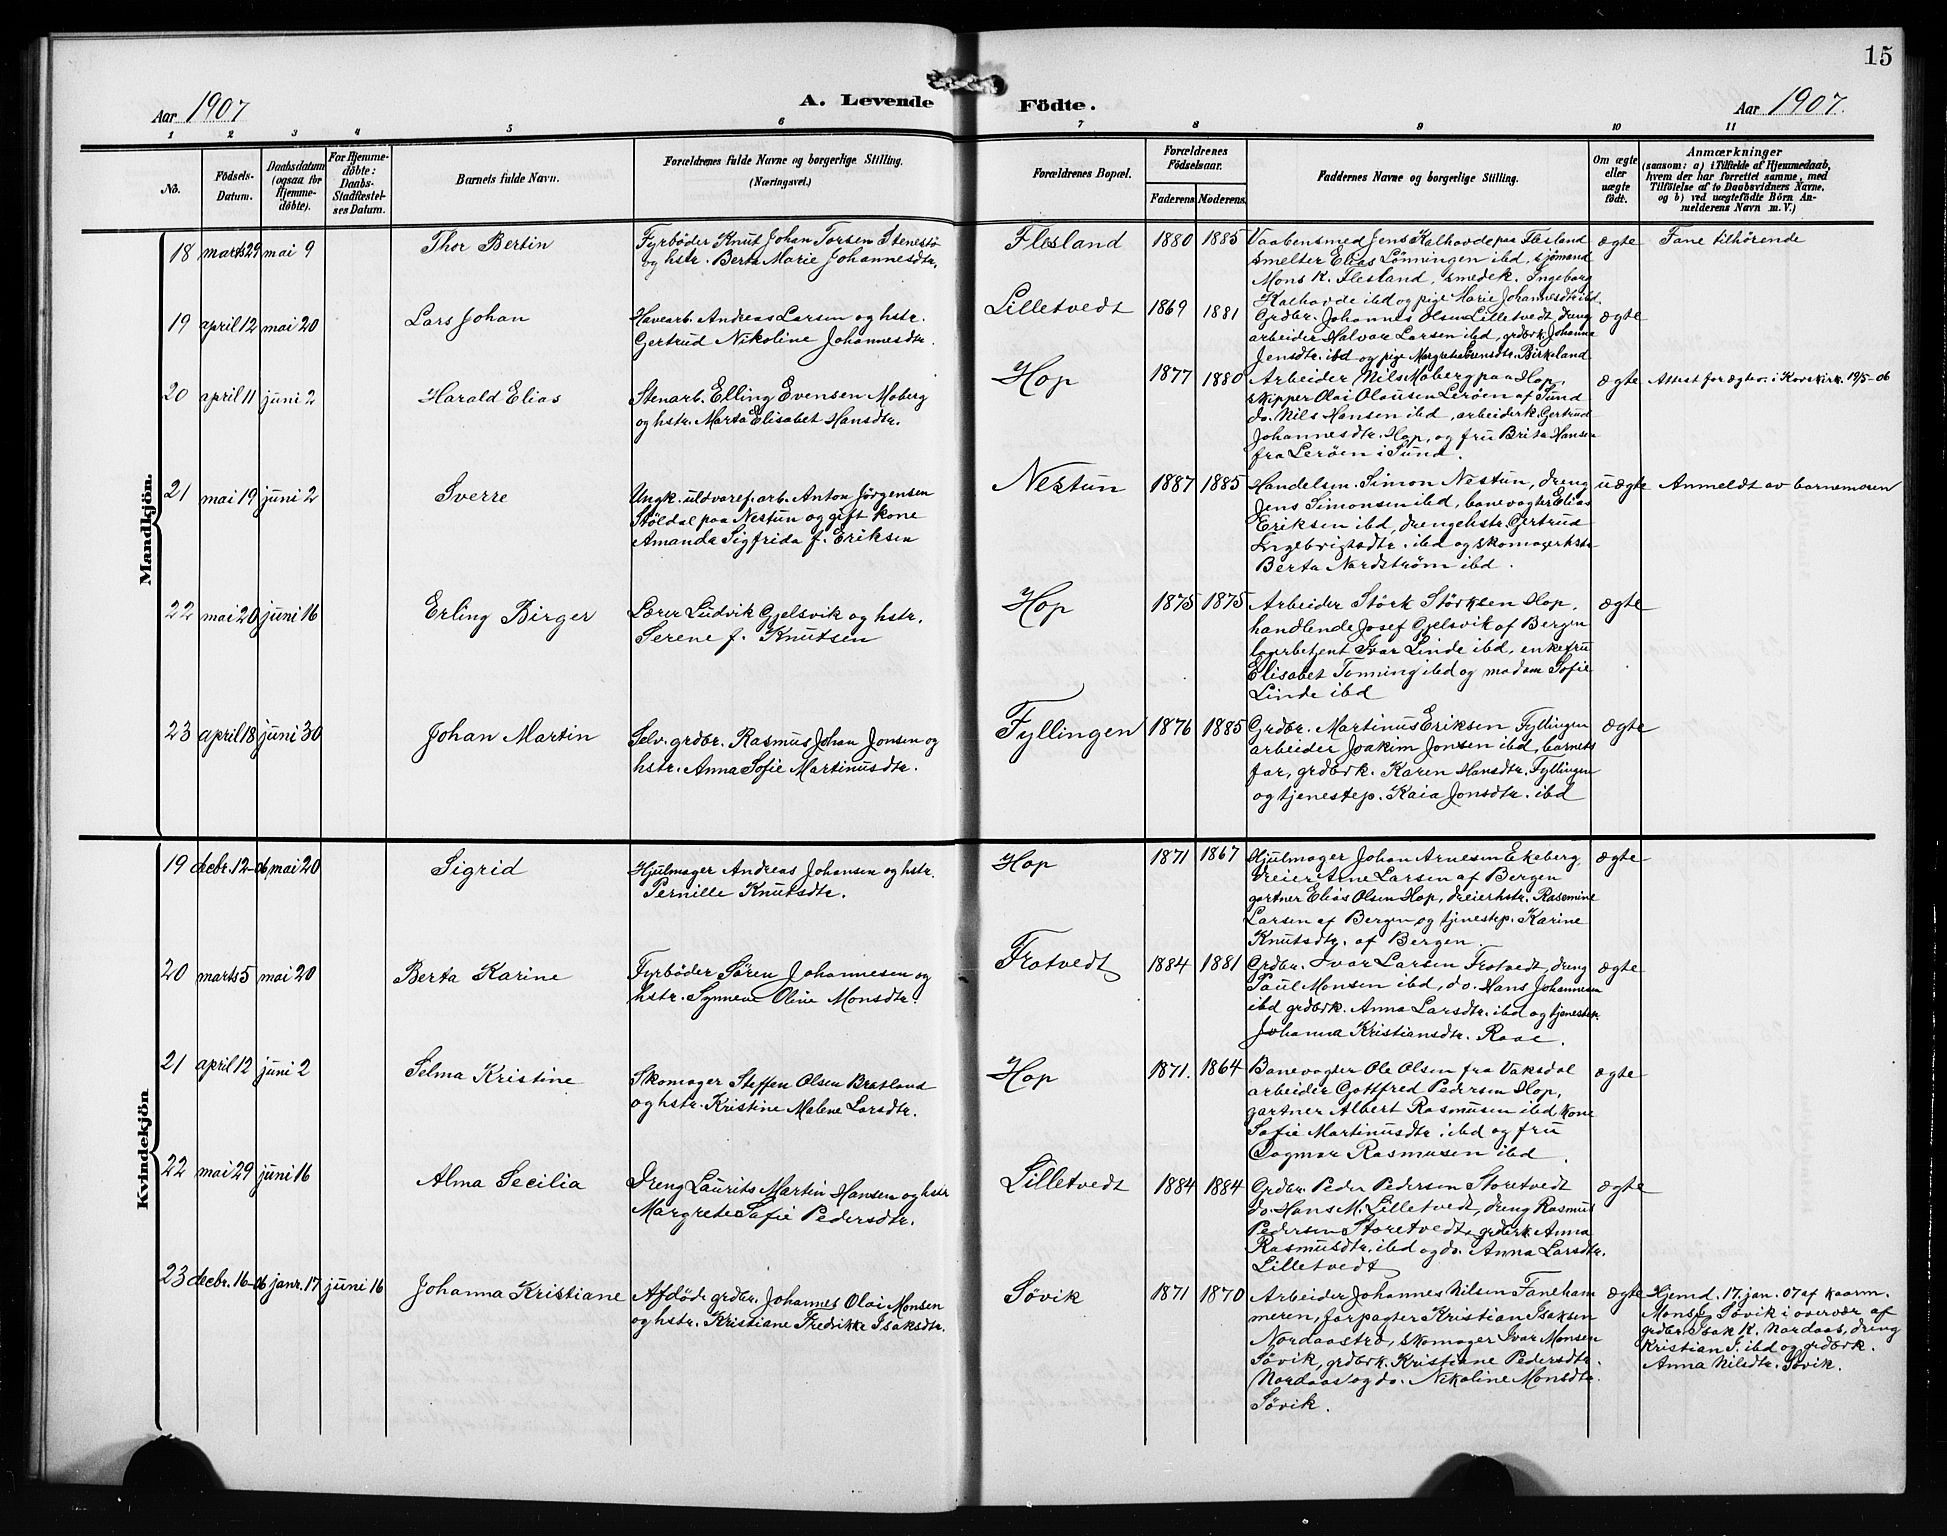 15
Aar 1907
A. Levende Födte.
Aar 1907.
1 2 3 4 5 6 7 8 9 10 11
No.
Födsels-
Datum.
Daabsdatum
(ogsaa for
Hjemme-
döbte).
For Hjemme-
döbte:
Daabs-
Stadfæstel-
ses Datum.
Barnets fulde Navn.
Forældrenes fulde Navne og borgerlige Stilling.
(Næringsvei.)
Forældrenes Bopæl.
Forældrenes
Födselsaar.
Faderens Moderens.
Faddernes Navne og borgerlige Stilling.
Om ægte
eller
uægte
födt.
Anmærkninger
(saasom: a) i Tilfælde af Hjemmedaab,
hvem der har forrettet samme, med
Tilföielse af to Daabsvidners Navne,
og b) ved uægtefödte Börn An-
melderens Navn m. V.)
Mandkjön.
18 marts 29 mai 9
Thor Bertin
Fyrbøder Knut Johan Torsen Stenestø
og hstr. Berta Marie Johannesdtr.
Flesland
1880 1885
Vaabensmed Jens Kalhovde paa Flesland
smelter Elias Lønningen ibd, sjømand
Mons K. Flesland, smedek. Ingeborg
Kalhovde ibd og pige Marie Johannesdtr ibd.
ægte
Fane tilhørende
19 april 12 mai 20
Lars Johan
Havearb. Andreas Larsen og hstr.
Gertrud Nikoline Johannesdtr.
Lilletvedt
1869 1881
Grdbr. Johannes Olsen Lilletvedt, dreng
arbeider Halvar Larsen ibd, grdbrk. Johanna
Jensdtr. ibd og pige Margrete Jensdtr. Birkeland
ægte
20 april 11 juni 2
Harald Elias
Stenarb. Elling Evensen Moberg
og hstr. Marta Elisabet Hansdtr.
Hop
1877 1880
Arbeider Nils Moberg paa Hop,
skipper Olai Olausen Lerøen af Sund
do. Nils Hansen ibd, arbeiderk. Gertrud
Johannesdtr. Hop, og fru Brita Hansen
fra Lerøen i Sund.
ægte
Attest for ægtev. i Korskirk. 19/5-06
21 mai 19 juni 2
Sverre
Ungk. uldvaref. arb. Anton Jørgensen
Støldal paa Nestun og gift kone
Amanda Sigfrida f. Eriksen
Nestun
1887 1885
Handelsm. Simon Nestun, dreng
Jens Simonsen ibd, banevogter Elias
Eriksen ibd, drengehstr. Gertrud
Ingebrigtsdtr. ibd og skomagerhstr
Berta Nordstrøm ibd.
uægte
Anmeldt av barnemoren
22 mai 20 juni 16
Erling Birger
Lærer Ludvik Gjelsvik og hstr.
Serene f. Knutsen
Hop
1875 1875
Arbeider Størk Størksen Hop,
handlende Josef Gjelsvik af Bergen
Ivar Linde ibd, enkefru
Elisabet Tonning ibd og madam Sofie
Linde ibd
ægte
23 april 18 juni 30
Johan Martin
Selv. grdbr. Rasmus Johan Jonsen og
hstr. Anna Sofie Martinusdtr.
Fyllingen
1876 1885
Grdbr. Martinus Eriksen Fyllingen
arbeider Joakim Jonsen ibd, barnets
far, grdbrk. Karen Hansdtr. Fyllingen
og tjenestep. Kaia Jonsdtr. ibd
ægte
Kvindekjön
19 decbr. 12-06 mai 20
Sigrid
Hjulmager Andreas Johansen og hstr.
Pernille Knutsdtr.
Hop
1871 1867
Hjulmager Johan Arnesen Ekeberg,
dreier Arne Larsen af Bergen
gartner Elias Olsen Hop, dreierhstr. Rasmine
Larsen af Bergen og tjenestep. Karine
Knutsdtr. af Bergen.
ægte
20 marts 5 mai 20
Berta Karine
Fyrbøder Søren Johannesen og
hstr. Synneve Oline Monsdtr.
Frotvedt
1884 1881
Grdbr. Ivar Larsen Frotvedt, dreng
Paul Monsen ibd, do. Hans Johannesen
ibd grdbrk. Anna Larsdtr. ibd og tjenestep.
Johanna Kristiansdtr. Raae.
ægte
21 april 12 juni 2
Selma Kristine
Skomager Steffen Olsen Bratland
og hstr. Kristine Malene Larsdtr.
Hop
1871. 1864
Banevogter Ole Olsen fra Vaksdal
arbeider Gottfred Pedersen Hop,
gartner Albert Rasmusen ibd kone
Sofie Martinusdtr. ibd og fru
Dagmar Rasmusen ibd.
ægte
22 mai 29 juni 16
Alma Secilia
Dreng Laurits Martin Hansen og hstr
Margrete Sofie Pedersdtr.
Lilletvedt
1884 1884
Grdbr. Peder Pedersen Storetvedt
do. Hans M. Lilletvedt, dreng Rasmus
Pedersen Storetvedt, grdbrk. Anna
Rasmusdtr. ibd og do. Anna Larsdtr.
Lilletvedt
ægte
23 decbr. 16-06 janr. 17 juni 16
Johanna Kristiane
Afdøde grdbr. Johannes Olai Monsen
og hstr. Kristiane Fredrikke Isaksdtr.
Søvik
1871 1870
Arbeider Johannes Nilsen Faneham
meren, forpagter Kristian Isaksen
Nordaastrø, skomager Ivar Monsen
Søvik, grdbrk. Kristiane Pedersdtr.
Nordaas og do. Nikoline Monsdtr.
Søvik.
ægte
Hjemd. 17. jan. 07 af kaarm.
Mons Søvik i overvær af
grdbr. Isak K. Nordaas, dreng
Kristian I. ibd og grdbrk.
Anna Nilsdtr. Søvik.